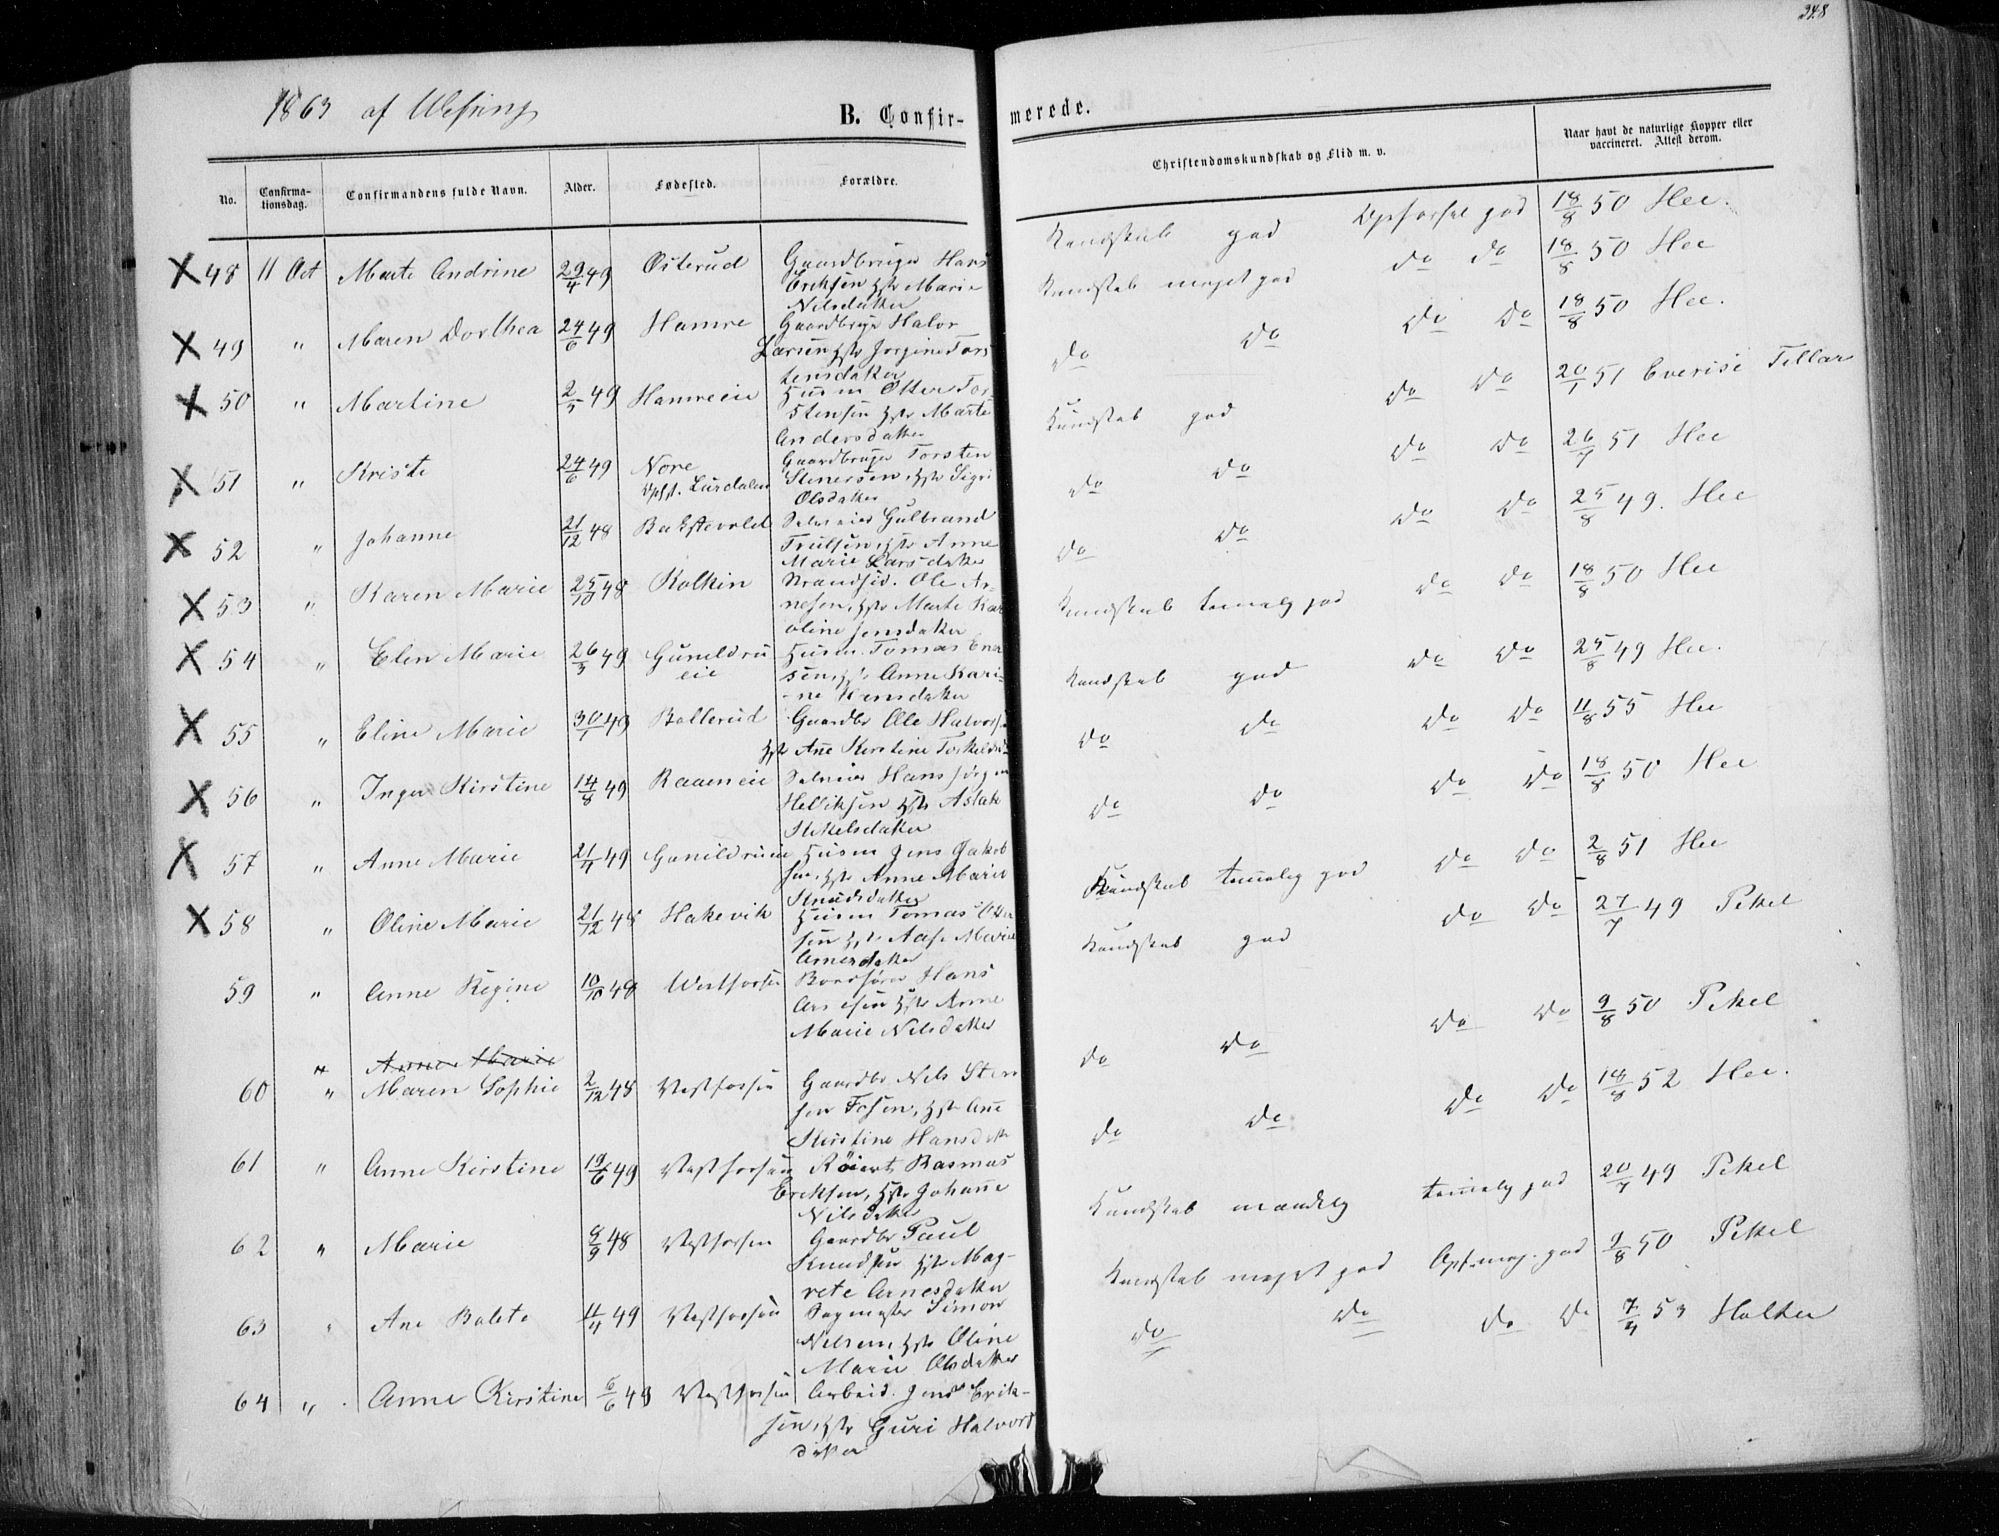 248
1863 af
B. Confirmerede.
No. Confirmationsdag. Confirmandens fulde Navn. Alder. Fødested. Forældre. Christendomskundskab og Flid m. v. Naar havt de naturlige Kopper eller vaccineret. Attest derom.
48 11 Oct Marte Andrine 29/4 49 Østerud Gaardbruger Hans
Eriksen Marie
Nilsdatter
Kundskab god god 18/8 50 Hee.
49 " Maren Dorthea 24/6 49 Hamre Gaardbruger Halvor
Larsen Jorgine Tors
tensdatter
Kundskab meget god do do 18/8 50 Hee
50 " Martine 49 Hamreeie Husm Otter Tor
stensen Marte
Andersdatter
do do do do 18/8 50 Hee.
51 " Kristi 24/6 49 Nore
Lurdalen
Gaardbruger Torsten
Stenersen Sigri
Olsdatter
Kundskab god do do 20/1 51
52 " Johanne 21/12 48 Gulbrand
Anne
Marie Larsdatter
do do do do 51 Hee
53 " Karen Marie 25/10 48 Kolkin Strandsid. Ole Ar-
nesen, Marte Kar
oline Jensdatter
do do do do 25/8 49. Hee
54 " Elen Marie 49 Gunildru
eie
Husm. Tomas
sen, Anne Kari-
ne
Kundskab temelig god do do 18/8 50 Hee
55 " Eline Marie 49 Bollerud Gaardbr Ole Halvors
Ane Kirstine
Kundskab god do do 25/8 49 Hee.
56 " Inger Kirstine 14/8 49 Raaeneie Hans Jörgen
Helliksen Aslak
do do do do 11/8 55 Hee
57 " Anne Marie 21/4 49 Gunildrueie Husm Jens Jakob
sen, Anne Marie
Knudsdatter
do do do do 18/8 50 Hee
58 " Oline Marie 21/12 48 Hakevik Husm Tomas Otter
sen Aase Marie
Arnesdatter
Kundskab temelig god do do 2/8 51 Hee
59 " Anne Regine 10/10 48 Vestfossen Hans
Arnesen Anne
Marie Nilsdatter
Kundskab god do do 27/7 49 Pikel
" Anne Marie
60 " Maren Sophie 2/12 48 Vestfossen Gaardbr Nils Sten
sen Fosen, Ane
Kirstine Hansdatter
do do do do 9/8 50 Pikel
61 " Anne Kirstine 19/6 49 Vestfossen Rasmus
Eriksen, Johane
Nilsdatter
do do do do 18/8 52 Hee.
62 " Marie 48 Vestfossen Gaardbr Paul
Knudsen Mag-
rete Arnesdatter
Kundskab maadelig temelig god 20/7 49 Pikel
63 " Ane Bolete 11/4 49 Vestfossen Sagmester Simon
Nilsen, Oline
Marie Olsdatter
Kundskab meget god Opf. meg. god 9/8 50 Pikel
64 " Anne Kirstine 6/6 48 Vestfossen Arbeid. Jens Erik-
sen, Guri Halvors
datter
do do do do 7/4 53 Holter